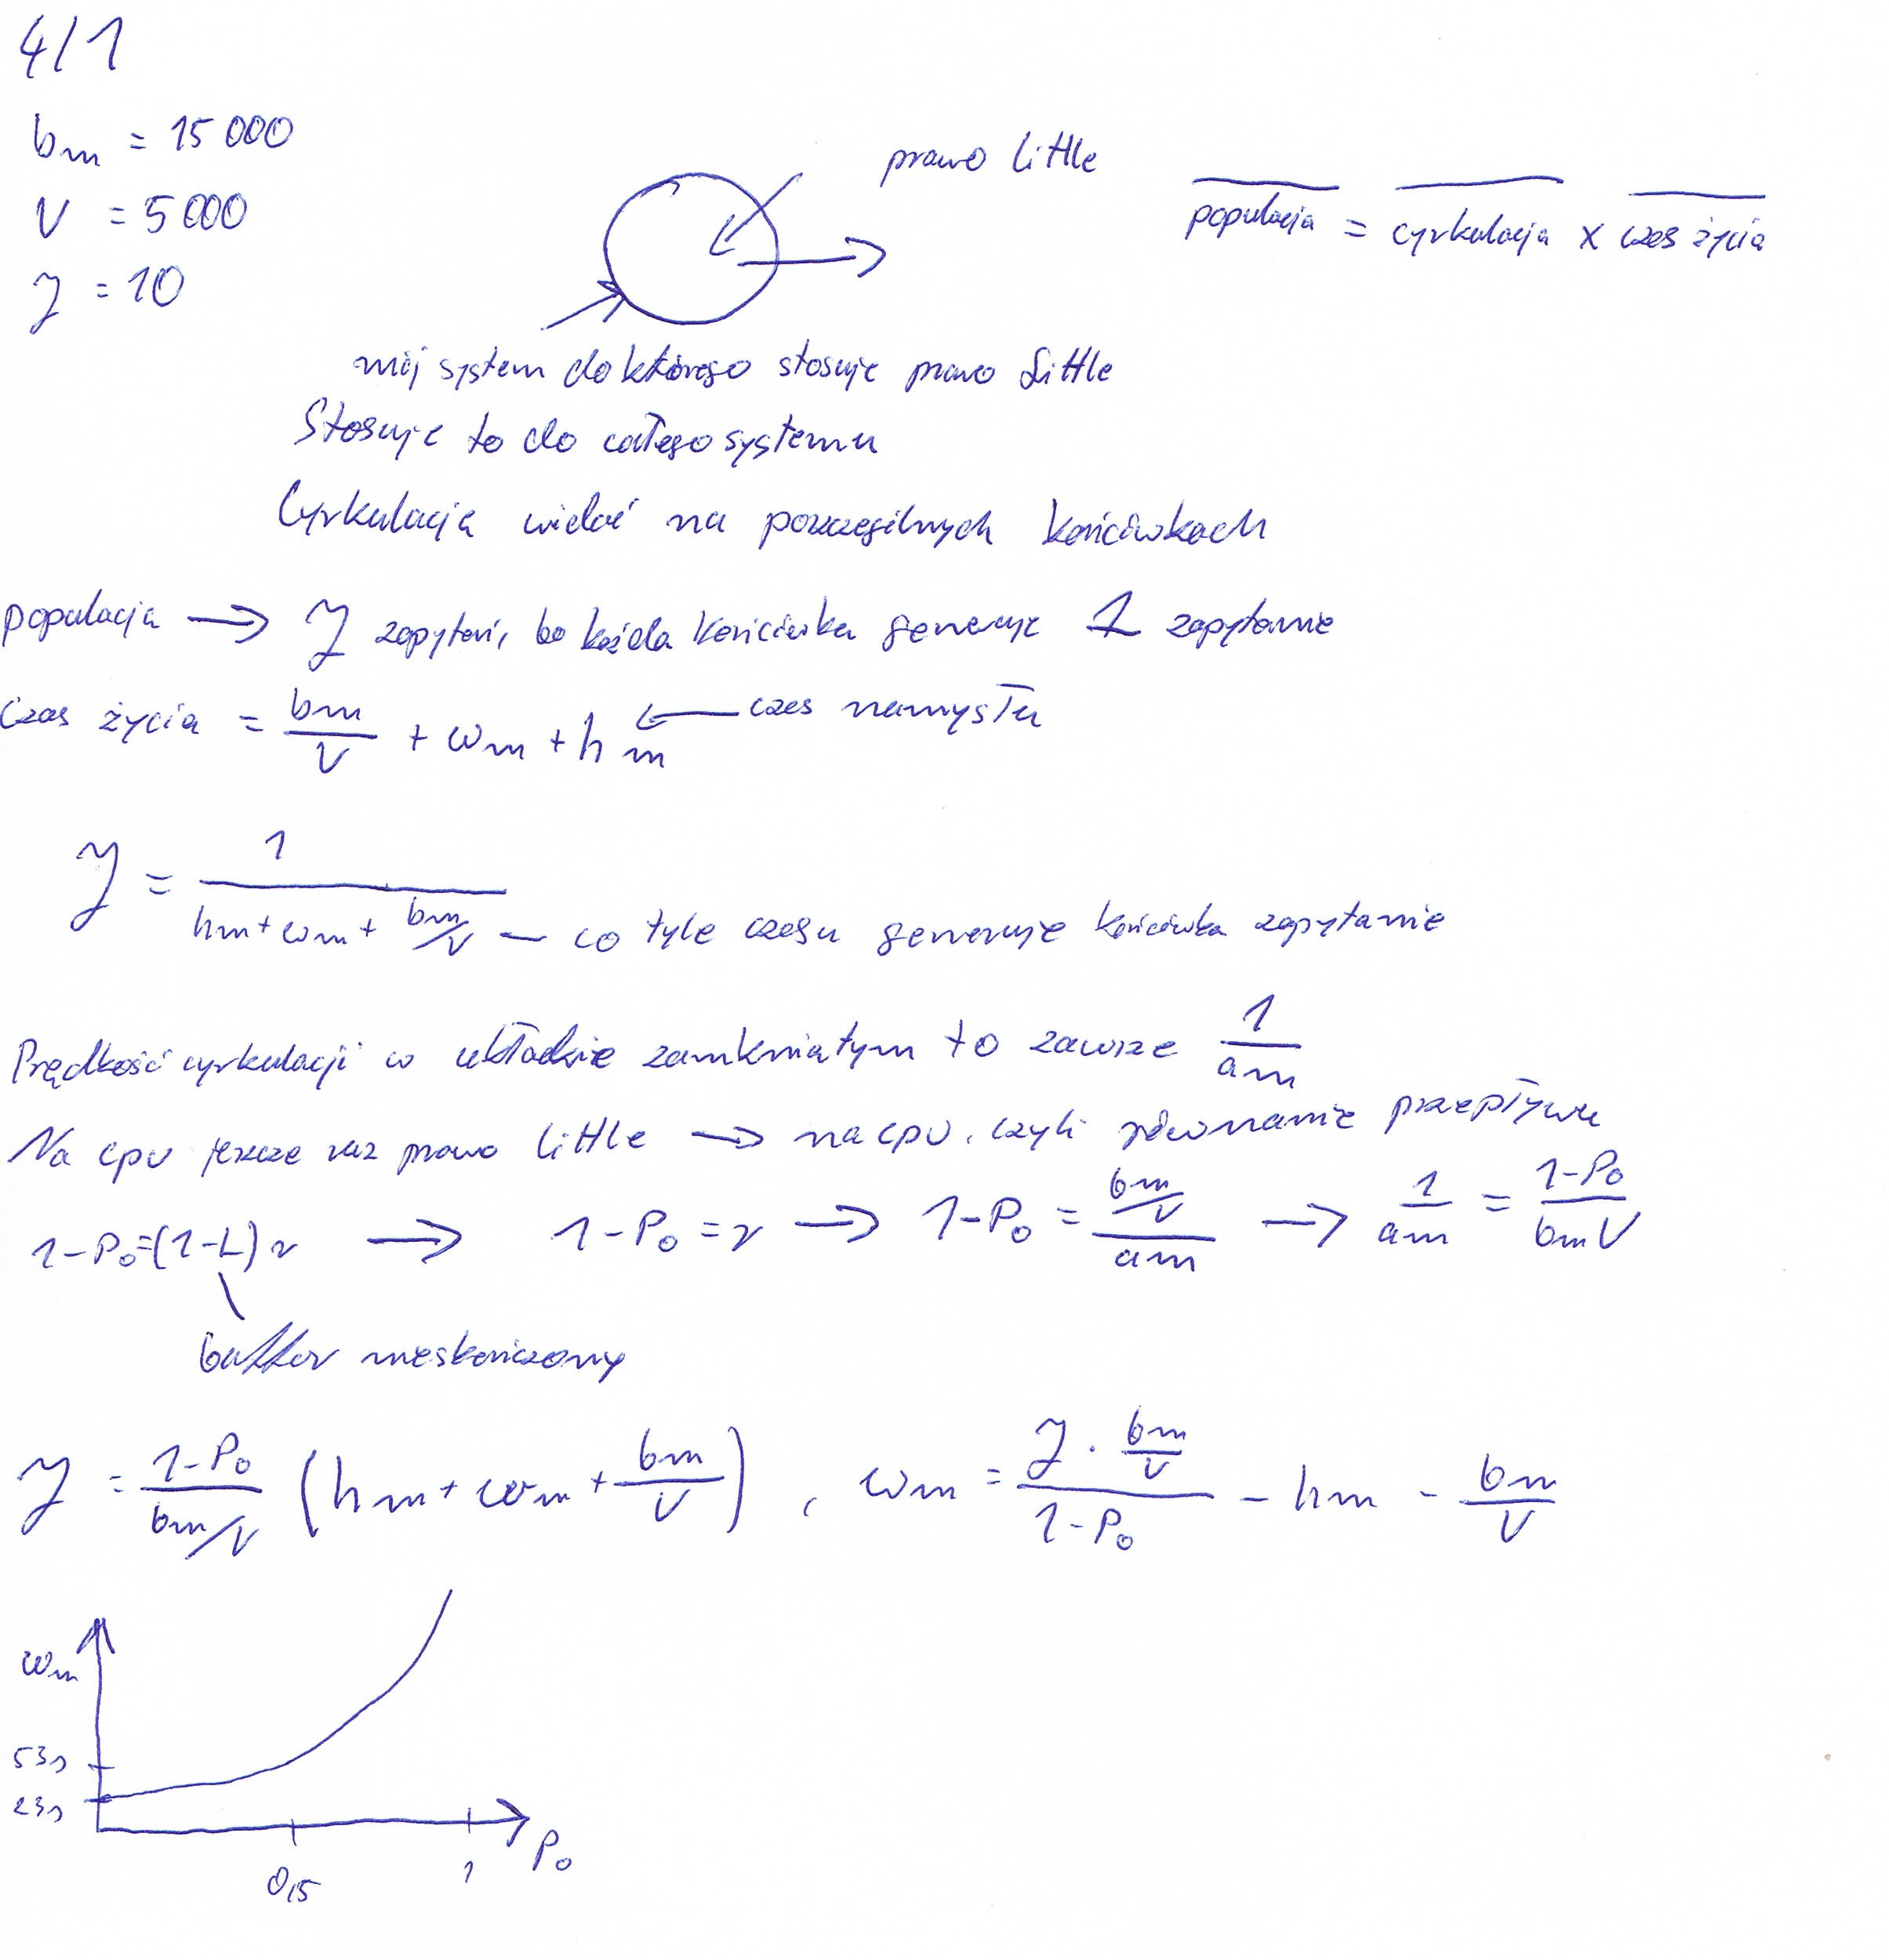 4/1
bm = 15 000
V = 5 000
J = 10
prawo Little
populacja = cyrkulacja x czas życia
mój system do którego stosuje prawo Little
Stosuje to do całego systemu
Cyrkulacja widać na poszczególnych końcówkach
populacja → J zapytań, bo każda końcówka generuje 1 zapytanie
czas życia = bm/V + wm + hm ← czas namysłu
J = 1/(hm + wm + bm/V) — co tyle czasu generuje końcówka zapytanie
Prędkość cyrkulacji w układzie zamkniętym to zawsze 1/am
Na cpu jeszcze raz prawo Little → na cpu, czyli równanie przepływu
1-P₀=(1-L)r → 1-P₀ = r → 1-P₀ = (bm/V)/am → 1/am = (1-P₀)/(bmV)
buffor nieskończony
J = (1-P₀)/(bm/V) (hm + wm + bm/V), wm = (J · bm/V)/(1-P₀) - hm - bm/V
wm
53s
23s
0,5
1
P₀